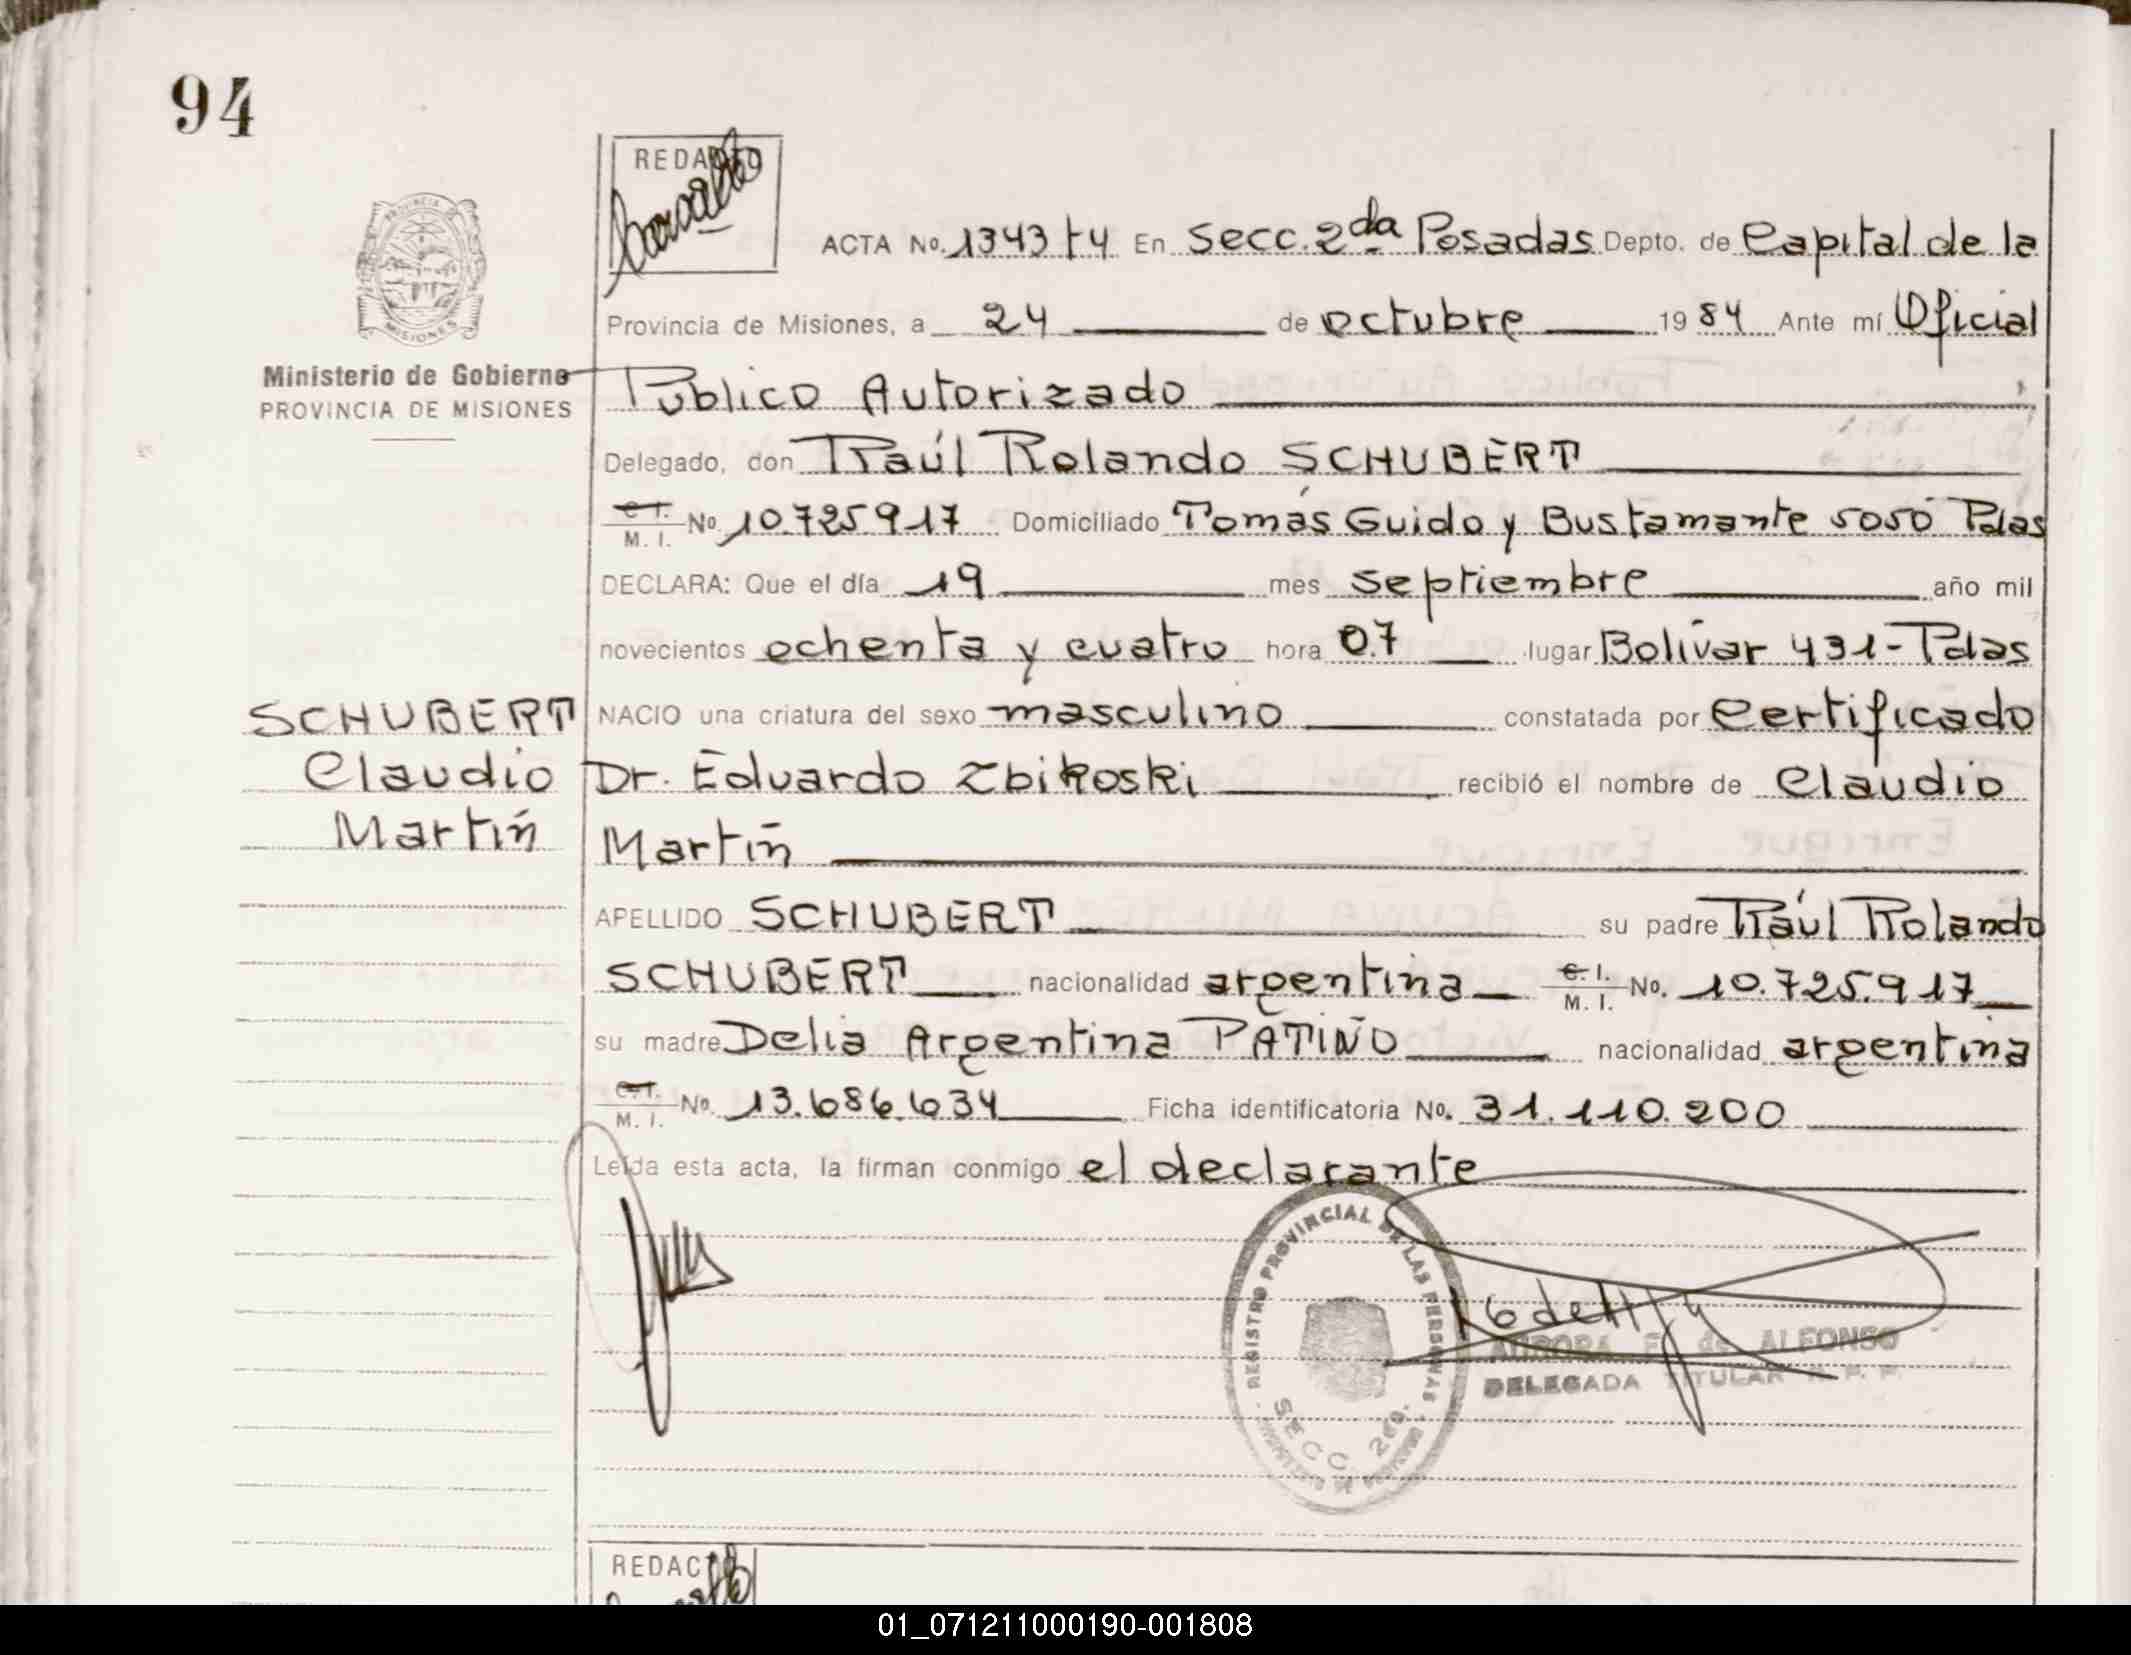 94
REDACTO
ACTA No. 1343 t4 En Secc. 2da Posadas Depto. de Capital de la
Provincia de Misiones, a 24 de octubre 1984 Ante mí Oficial
Ministerio de Gobierno
PROVINCIA DE MISIONES
Público Autorizado
Delegado, don Raúl Rolando SCHUBERT
C. I. M. I. No. 10.725.917 Domiciliado Tomás Guido y Bustamante 5050 Pdas
DECLARA: Que el día 19 mes septiembre año mil
novecientos ochenta y cuatro hora 07 lugar Bolívar 431-Pdas
SCHUBERT
Claudio
Martín
NACIO una criatura del sexo masculino constatada por Certificado
Dr. Eduardo Zbikoski recibió el nombre de Claudio
Martín
APELLIDO SCHUBERT su padre Raúl Rolando
SCHUBERT nacionalidad argentina C. I. M. I. No. 10.725.917
su madre Delia Argentina PATIÑO nacionalidad argentina
C. I. M. I. No. 13.686.634 Ficha identificatoria No. 31.110.200
Leída esta acta, la firman conmigo el declarante
REGISTRO PROVINCIAL DE LAS PERSONAS
SECC. 2da.
AURORA F. de ALFONSO
DELEGADA TITULAR R. P. P.
REDACTO
01_071211000190-001808